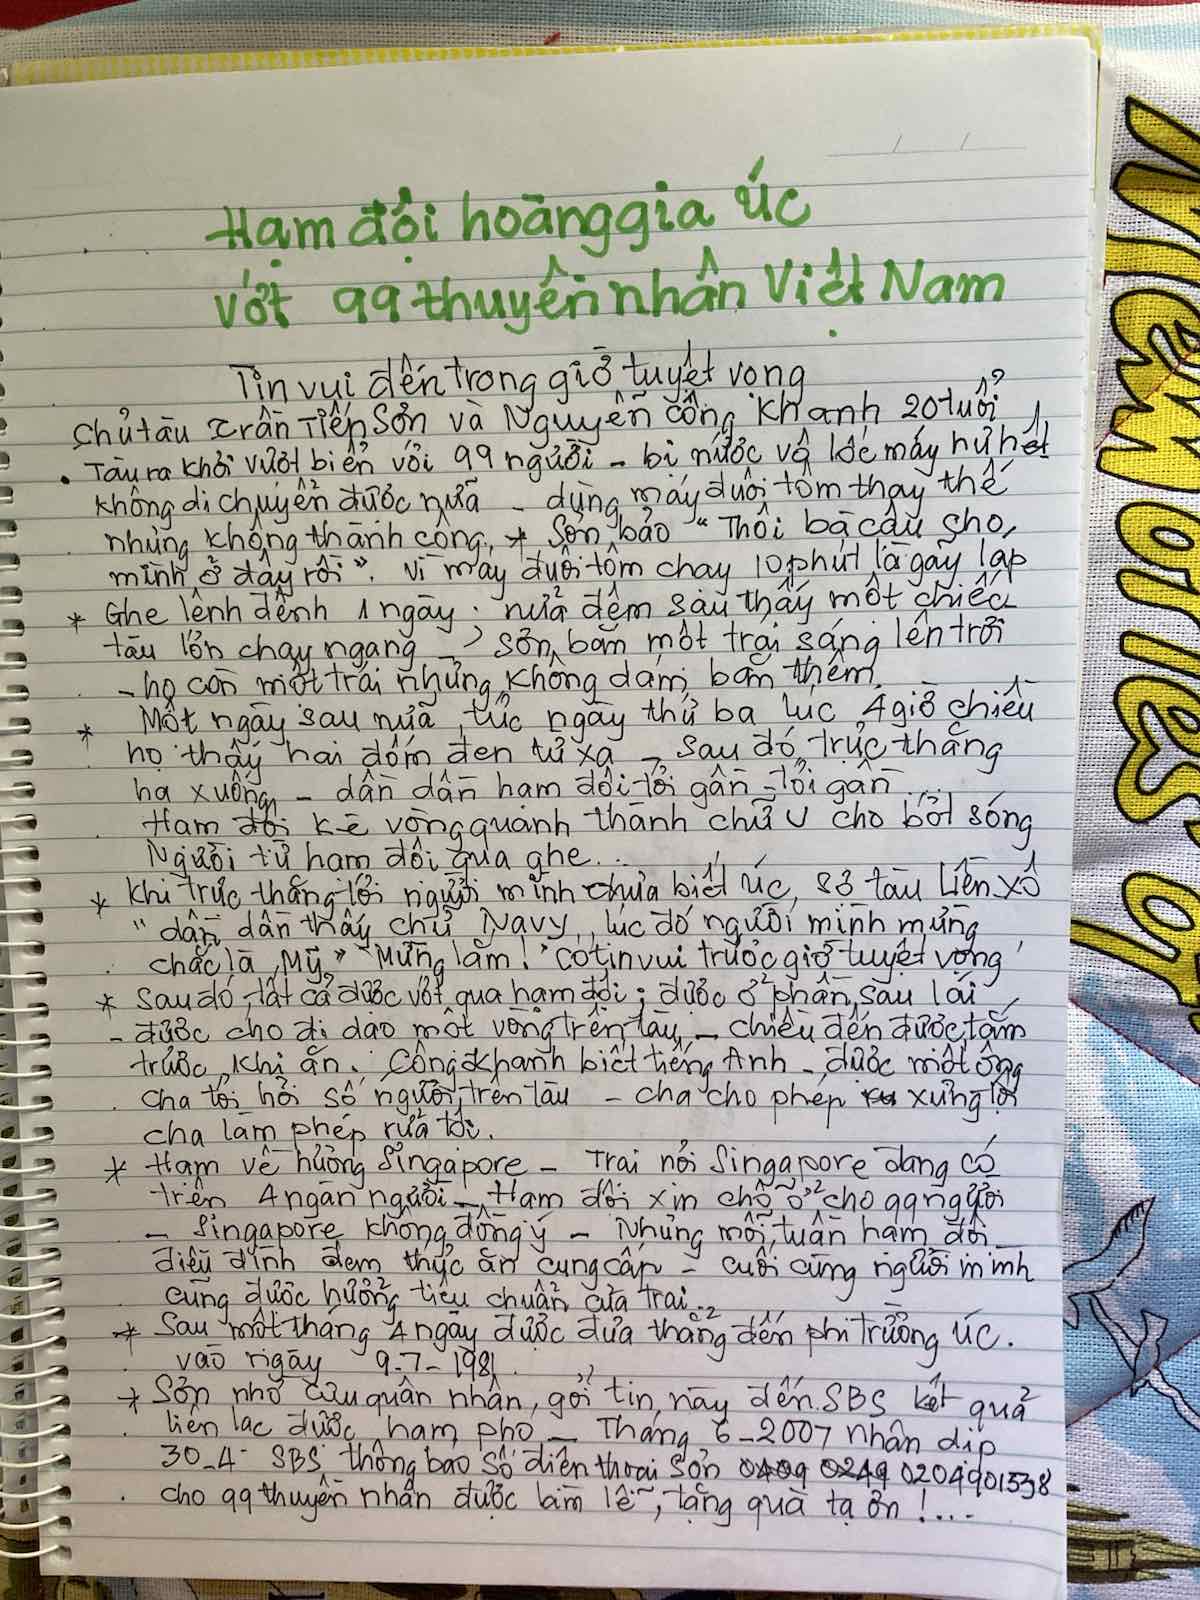 Hạm đội hoàng gia Úc
Vớt 99 thuyền nhân Việt Nam
Tin vui đến trong giờ tuyệt vọng
Chủ tàu Trần Tiến Sơn và Nguyễn Công Khanh 20 tuổi
• Tàu ra khơi vượt biển với 99 người - bị nước vô lốc máy hư hết
không di chuyển được nữa - dùng máy đuôi tôm thay thế
nhưng không thành công, * Sơn bảo "Thôi bà cậu cho
mình ở đây rồi". Vì máy đuôi tôm chạy 10 phút là gãy láp
* Ghe lênh đênh 1 ngày. nửa đêm sau thấy một chiếc
tàu lớn chạy ngang -> Sơn bắn một trái sáng lên trời
- họ còn một trái nhưng không dám bắn thêm.
* Một ngày sau nữa, tức ngày thứ ba lúc 4 giờ chiều
họ thấy hai đốm đen từ xa - sau đó trực thăng
hạ xuống - dần dần hạm đội tới gần - tới gần
Hạm đội kè vòng quanh thành chữ U cho bớt sóng
Người từ hạm đội qua ghe...
* Khi trực thăng tới người mình chưa biết Úc, sợ tàu Liên Xô
" dần dần thấy chữ Navy, lúc đó người mình mừng
chắc là Mỹ" Mừng lắm! 'Có tin vui trước giờ tuyệt vọng'
* Sau đó tất cả được vớt qua hạm đội; được ở phần sau lái
- được cho đi dạo một vòng trên tàu - chiều đến được tắm
trước khi ăn. Công Khanh biết tiếng Anh - được một ông
cha tới hỏi số người trên tàu - cha cho phép xưng tội
cha làm phép rửa tội.
* Hạm về hướng Singapore - Trại nói Singapore đang có
trên 4 ngàn người - Hạm đội xin chỗ ở cho 99 người
- Singapore không đồng ý - Nhưng mỗi tuần hạm đội
điều đình đem thức ăn cung cấp - cuối cùng người mình
cũng được hưởng tiêu chuẩn của trại.
* Sau một tháng 4 ngày được đưa thẳng đến phi trường Úc.
vào ngày 9-7-1981.
* Sơn nhờ cựu quân nhân, gởi tin này đến SBS kết quả
liên lạc được hạm phó - Tháng 6-2007 nhân dịp
30-4 SBS thông báo số điện thoại Sơn 0204901538
cho 99 thuyền nhân được làm lễ, tặng quà tạ ơn!...
Memories of